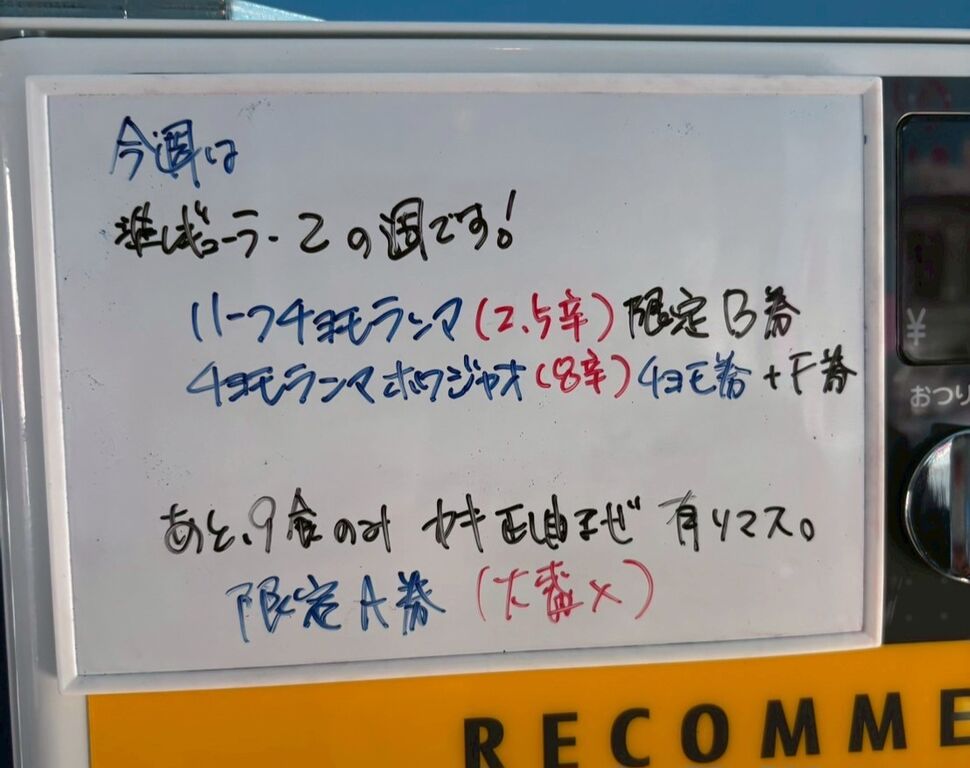 今週は
準レギューラー 2の週です!
ハーフチョモランマ(2.5辛)限定B券
チョモランマホワジャオ(8辛)チョモ券+F券
あと、9食のみ カキ正油まぜ 有リマス。
限定A券(大盛×)
¥
おつり
RECOMME